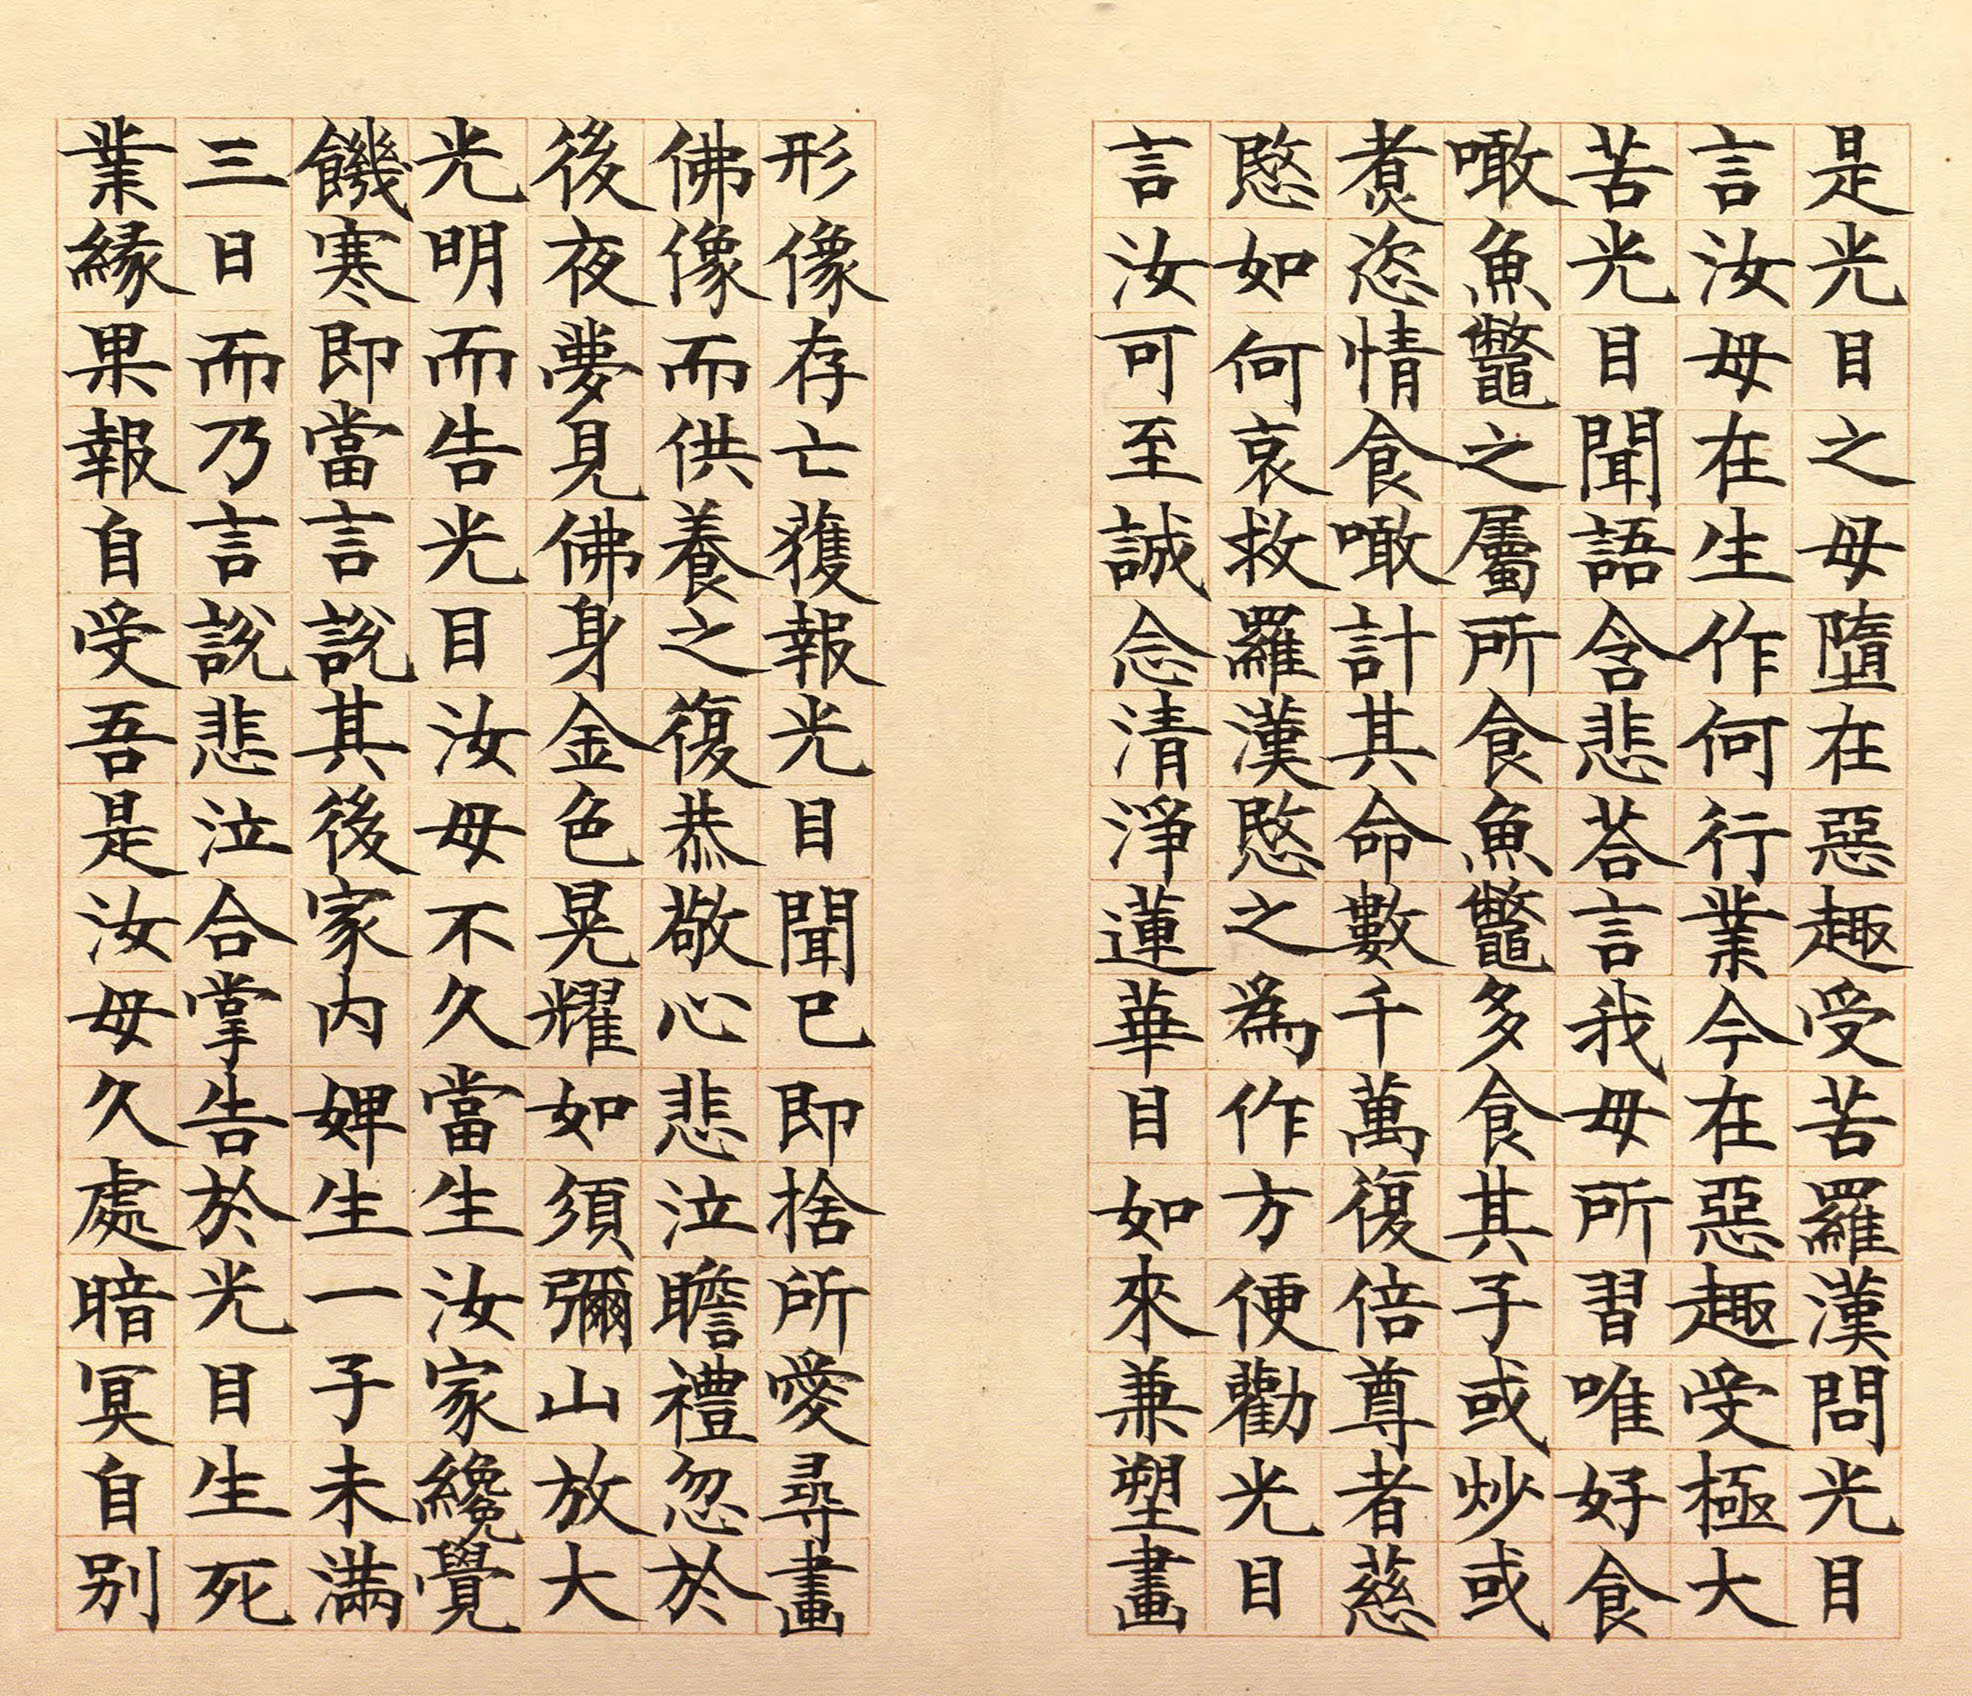 是光目之母墮在惡趣受苦羅漢問光目
言汝母在生作何行業今在惡趣受極大
苦光目聞語含悲荅言我母所習唯好食
噉魚鼈之屬所食魚鼈多食其子或炒或
煑恣情食噉計其命數千萬復倍尊者慈
愍如何哀救羅漢愍之為作方便勸光目
言汝可至誠念清淨蓮華目如來兼塑畫
形像存亡獲報光目聞已即捨所愛尋畫
佛像而供養之復恭敬心悲泣瞻禮忽於
後夜夢見佛身金色晃耀如須彌山放大
光明而告光目汝母不久當生汝家纔覺
饑寒即當言說其後家內婢生一子未滿
三日而乃言說悲泣合掌告於光目生死
業緣果報自受吾是汝母久處暗冥自別